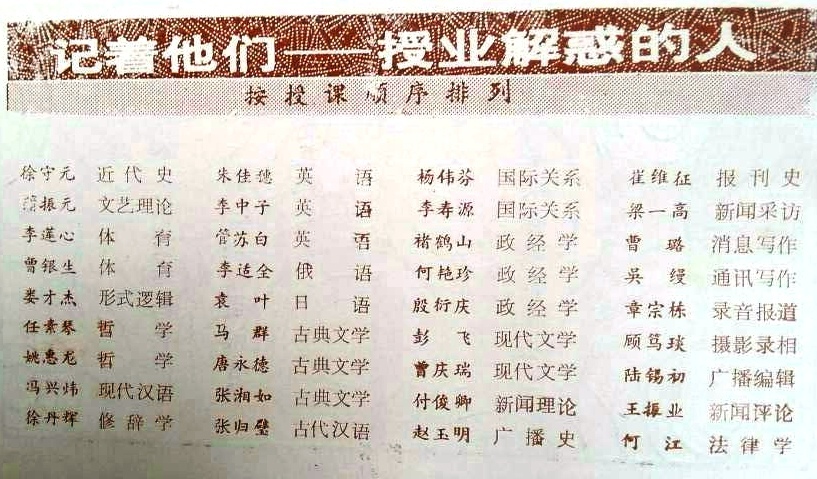 记着他们——授业解惑的人
按授课顺序排列
徐守元 近代史 朱佳穗 英语 杨伟芬 国际关系 崔维征 报刊史
振元 文艺理论 李中子 英语 李寿源 国际关系 梁一高 新闻采访
李莲心 体育 管苏白 英语 褚鹤山 政经学 曹璐 消息写作
曾银生 体育 李适全 俄语 何艳珍 政经学 吴缦 通讯写作
娄才杰 形式逻辑 袁叶 日语 殷衍庆 政经学 章宗栋 录音报道
任素琴 哲学 马群 古典文学 彭飞 现代文学 顾笃琰 摄影录相
姚惠龙 哲学 唐永德 古典文学 曹庆瑞 现代文学 陆锡初 广播编辑
冯兴炜 现代汉语 张湘如 古典文学 付俊卿 新闻理论 王振业 新闻评论
徐丹辉 修辞学 张归璧 古代汉语 赵玉明 广播史 何江 法律学